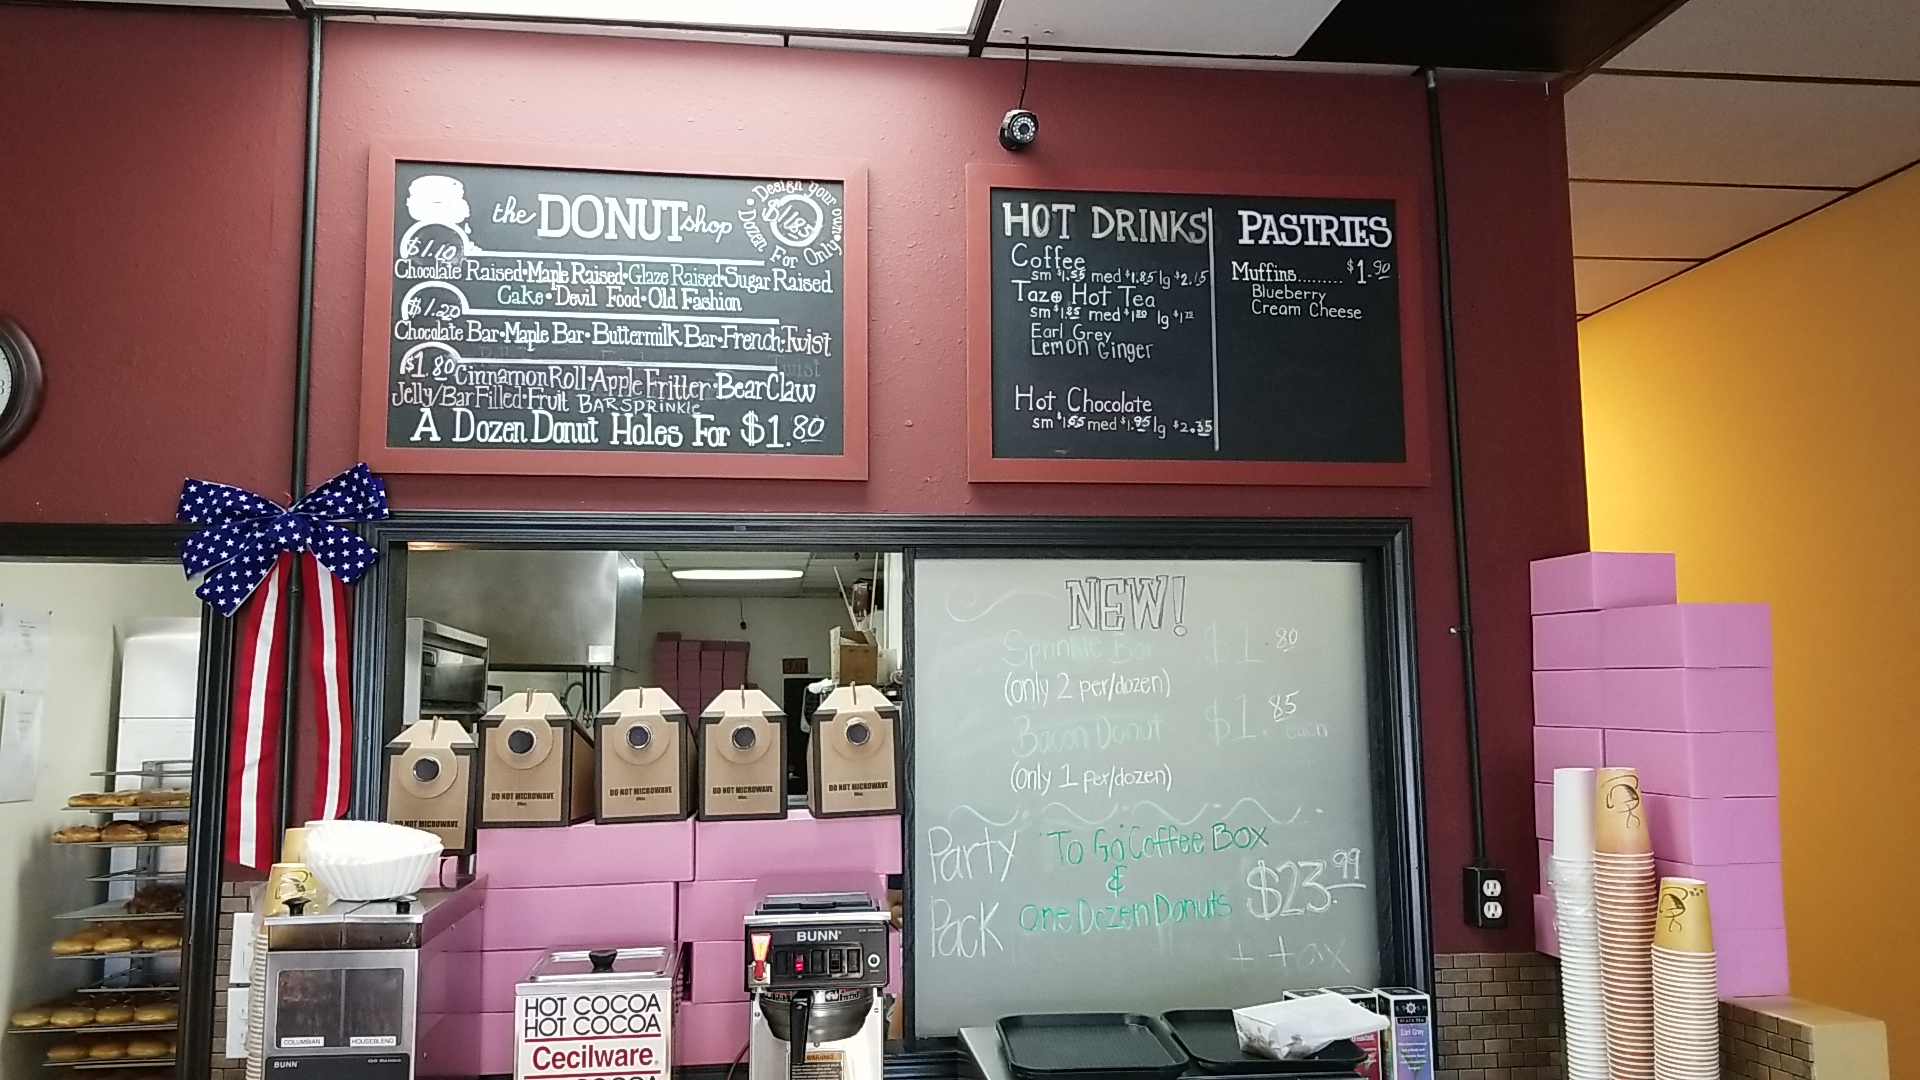 the DONUT shop
Design your own
Dozen For Only
$11.85
$1.10
Chocolate Raised•Maple Raised•Glaze Raised•Sugar Raised
Cake•Devil Food•Old Fashion
$1.20
Chocolate Bar•Maple Bar•Buttermilk Bar•French•Twist
$1.80 Cinnamon Roll•Apple Fritter•Bear Claw
Jelly/Bar Filled•Fruit BAR SPRINKLE
A Dozen Donut Holes For $1.80
HOT DRINKS
Coffee
sm $1.55 med $1.85 lg $2.15
Tazo Hot Tea
sm $1.85 med lg
Earl Grey
Lemon Ginger
Hot Chocolate
sm $1.55 med $1.95 lg $2.35
PASTRIES
Muffins......... $1.90
Blueberry
Cream Cheese
NEW!
Sprinkle Bar $1.80
(only 2 per/dozen)
Bacon Donut $1.85 each
(only 1 per/dozen)
Party Pack
To Go Coffee Box
&
One Dozen Donuts
$23.99
+ tax
DO NOT MICROWAVE
DO NOT MICROWAVE
DO NOT MICROWAVE
DO NOT MICROWAVE
DO NOT MICROWAVE
EXIT
COLUMBIAN HOUSEBLEND
BUNN
HOT COCOA
HOT COCOA
Cecilware
BUNN
WARNING
Earl Grey